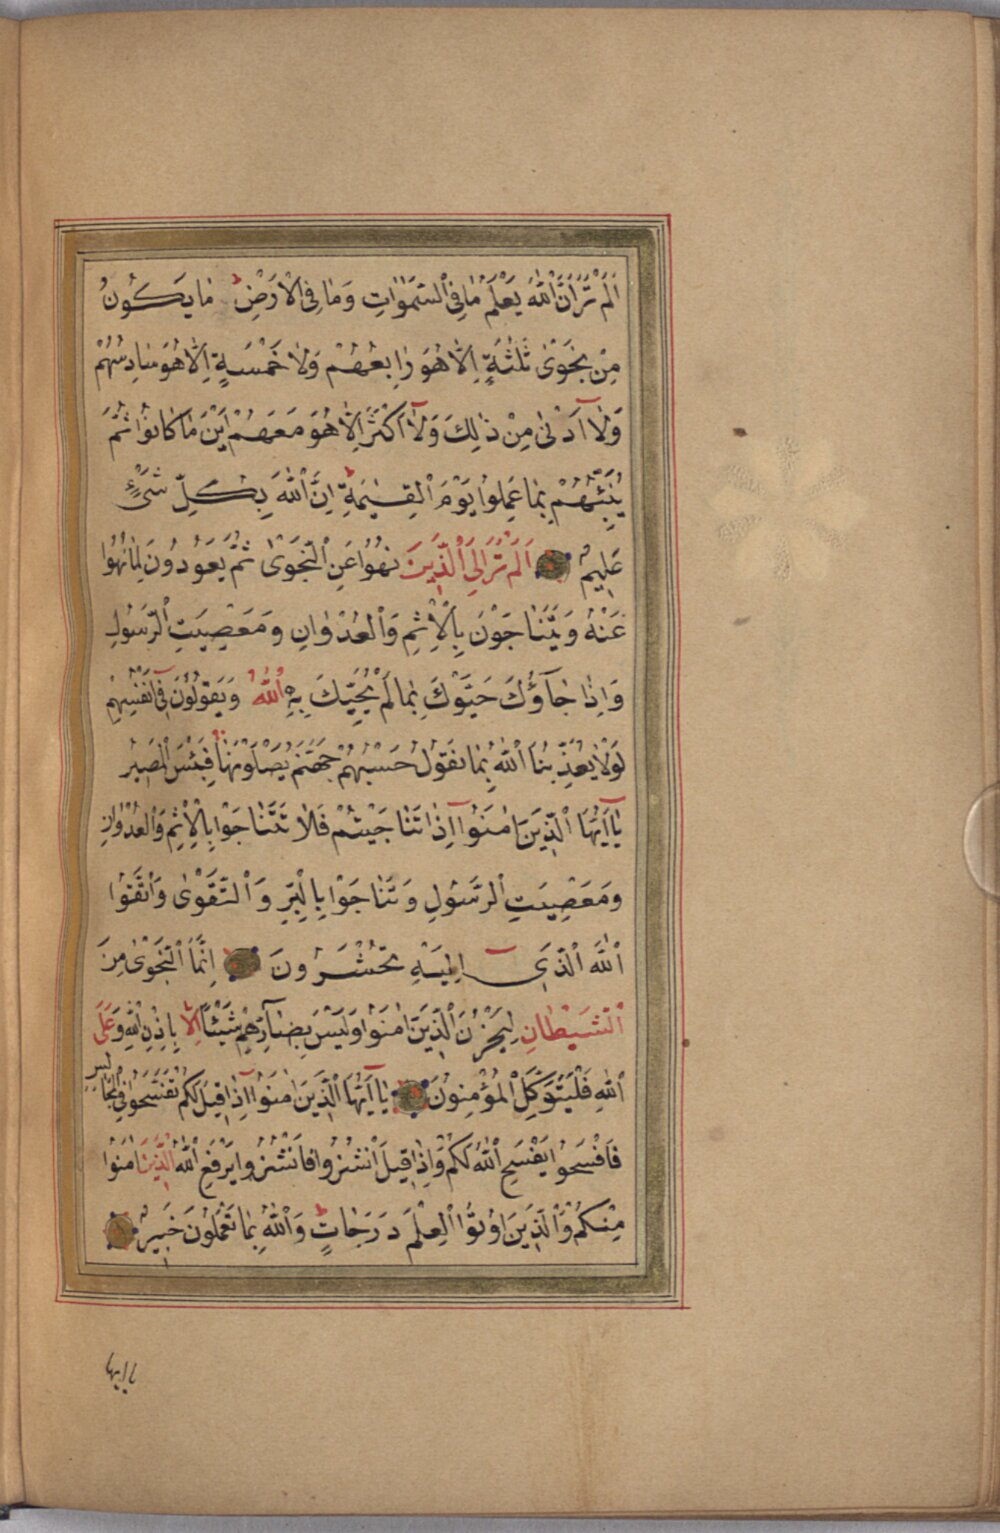 اَلَمْ تَرَ اَنَّ اللّٰهَ يَعْلَمُ مَا فِى السَّمٰوَاتِ وَمَا فِى الْاَرْضِ مَا يَكُونُ
مِنْ نَجْوٰى ثَلٰثَةٍ اِلَّا هُوَ رَابِعُهُمْ وَلَا خَمْسَةٍ اِلَّا هُوَ سَادِسُهُمْ
وَلَآ اَدْنٰى مِنْ ذٰلِكَ وَلَآ اَكْثَرَ اِلَّا هُوَ مَعَهُمْ اَيْنَ مَا كَانُوا ثُمَّ
يُنَبِّئُهُمْ بِمَا عَمِلُوا يَوْمَ الْقِيٰمَةِ اِنَّ اللّٰهَ بِكُلِّ شَىْءٍ
عَلِيمٌ اَلَمْ تَرَ اِلَى الَّذِينَ نُهُوا عَنِ النَّجْوٰى ثُمَّ يَعُودُونَ لِمَا نُهُوا
عَنْهُ وَيَتَنَاجَوْنَ بِالْاِثْمِ وَالْعُدْوَانِ وَمَعْصِيَتِ الرَّسُولِ
وَاِذَا جَآؤُكَ حَيَّوْكَ بِمَا لَمْ يُحَيِّكَ بِهِ اللّٰهُ وَيَقُولُونَ فِىٓ اَنْفُسِهِمْ
لَوْلَا يُعَذِّبُنَا اللّٰهُ بِمَا نَقُولُ حَسْبُهُمْ جَهَنَّمُ يَصْلَوْنَهَا فَبِئْسَ الْمَصِيرُ
يَآ اَيُّهَا الَّذِينَ اٰمَنُوٓا اِذَا تَنَاجَيْتُمْ فَلَا تَتَنَاجَوْا بِالْاِثْمِ وَالْعُدْوَانِ
وَمَعْصِيَتِ الرَّسُولِ وَتَنَاجَوْا بِالْبِرِّ وَالتَّقْوٰى وَاتَّقُوا
اللّٰهَ الَّذِىٓ اِلَيْهِ تُحْشَرُونَ اِنَّمَا النَّجْوٰى مِنَ
الشَّيْطَانِ لِيَحْزُنَ الَّذِينَ اٰمَنُوا وَلَيْسَ بِضَآرِّهِمْ شَيْئًا اِلَّا بِاِذْنِ اللّٰهِ وَعَلَى
اللّٰهِ فَلْيَتَوَكَّلِ الْمُؤْمِنُونَ يَآ اَيُّهَا الَّذِينَ اٰمَنُوٓا اِذَا قِيلَ لَكُمْ تَفَسَّحُوا فِى الْمَجَالِسِ
فَافْسَحُوا يَفْسَحِ اللّٰهُ لَكُمْ وَاِذَا قِيلَ انْشُزُوا فَانْشُزُوا يَرْفَعِ اللّٰهُ الَّذِينَ اٰمَنُوا
مِنْكُمْ وَالَّذِينَ اُوتُوا الْعِلْمَ دَرَجَاتٍ وَاللّٰهُ بِمَا تَعْمَلُونَ خَبِيرٌ
يا ايها